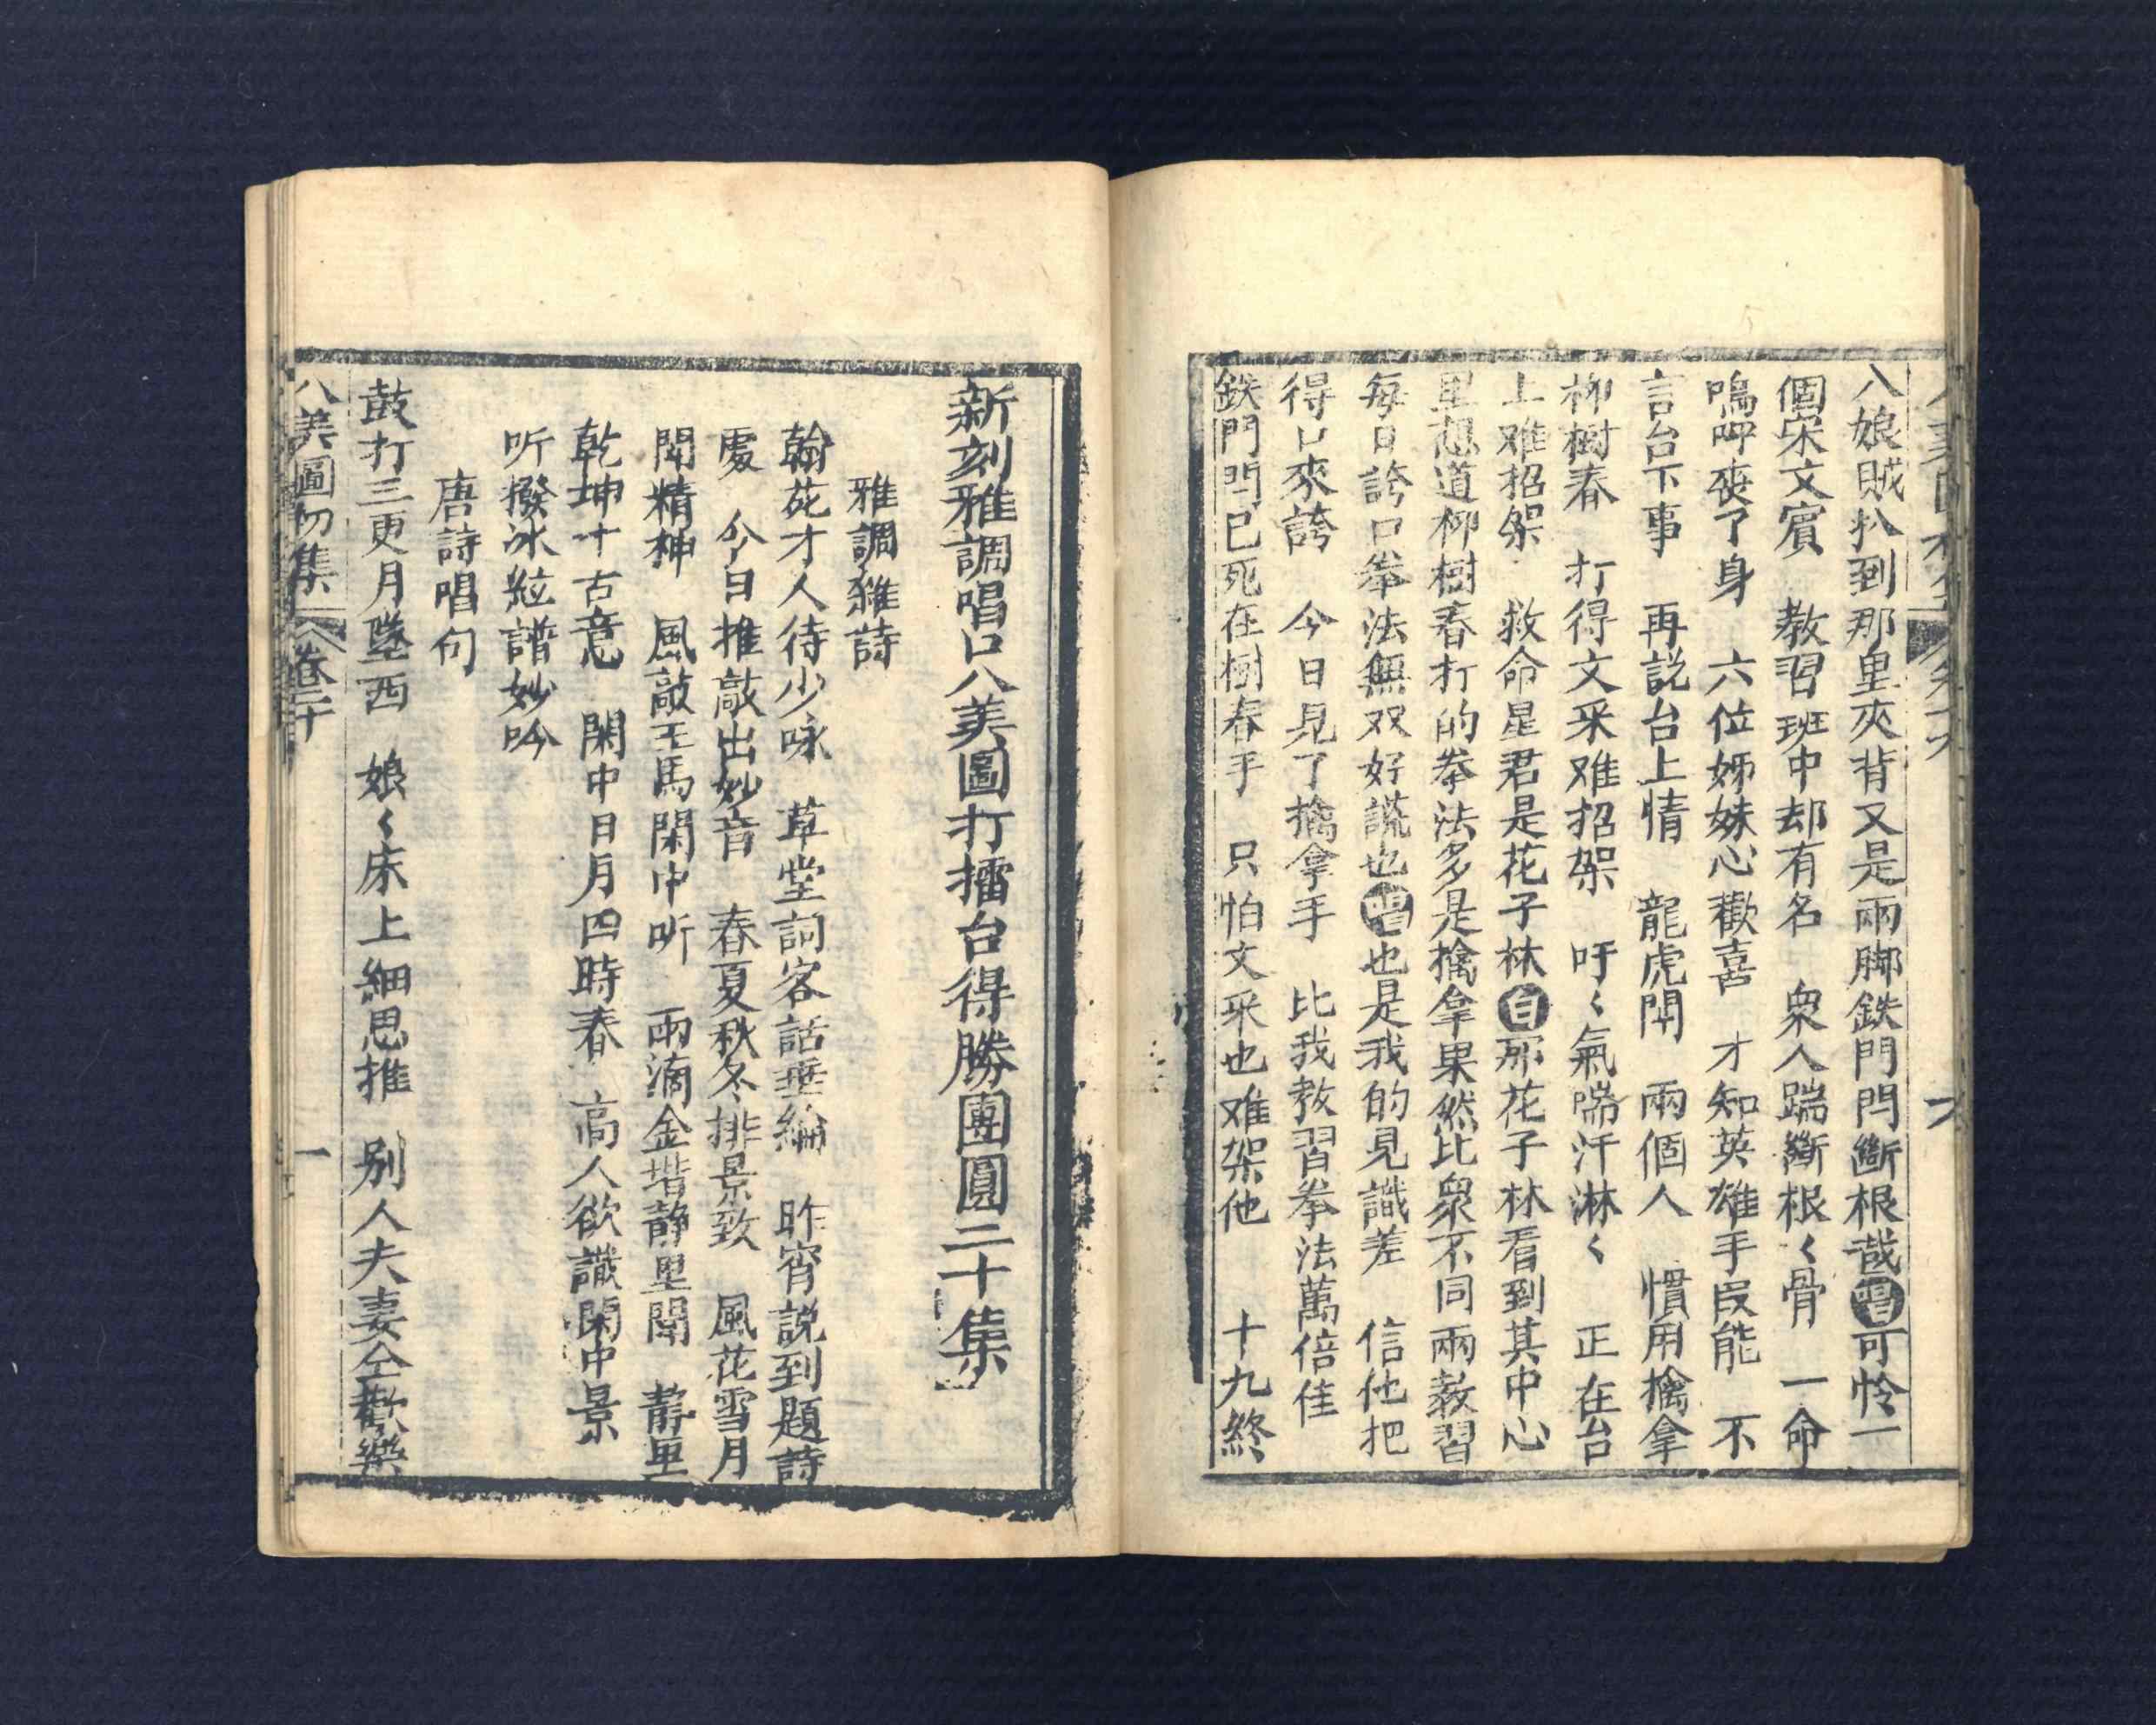 八娘賊扒到那里夾背又是兩脚鉄門閂斷根哉唱可怜一
個宋文賓 教習班中却有名 衆人踹斷根く骨 一命
嗚呼丧了身 六位姊妹心歡喜 才知英雄手段能 不
言台下事 再説台上情 龍虎鬥 兩個人 慣用擒拿
柳樹春 打得文采难招架 吁く氣喘汗淋く 正在台
上难招架 救命星君是花子林白那花子林看到其中心
里想道柳樹春打的拳法多是擒拿果然比衆不同兩教習
每日誇口拳法無双好謊也唱也是我的見識差 信他把
得口來誇 今日見了擒拿手 比我教習拳法萬倍佳
鉄門閂已死在樹春手 只怕文采也难架他 十九終
新刻雅調唱口八美圖打擂台得勝團圓二十集
雅調雜詩
翰苑才人待少咏 草堂詞客話垂綸 昨宵説到題詩
處 今日推敲出妙音 春夏秋冬排景致 風花雪月
閗精神 風敲玉馬閑中听 雨滴金堦静里聞 静里
乾坤千古意 閑中日月四時春 高人欲識閑中景
听撥冰絃譜妙吟
唐詩唱句
鼓打三更月墜西 娘く床上細思推 别人夫妻仝歡樂
八美圖初集 卷二十 一